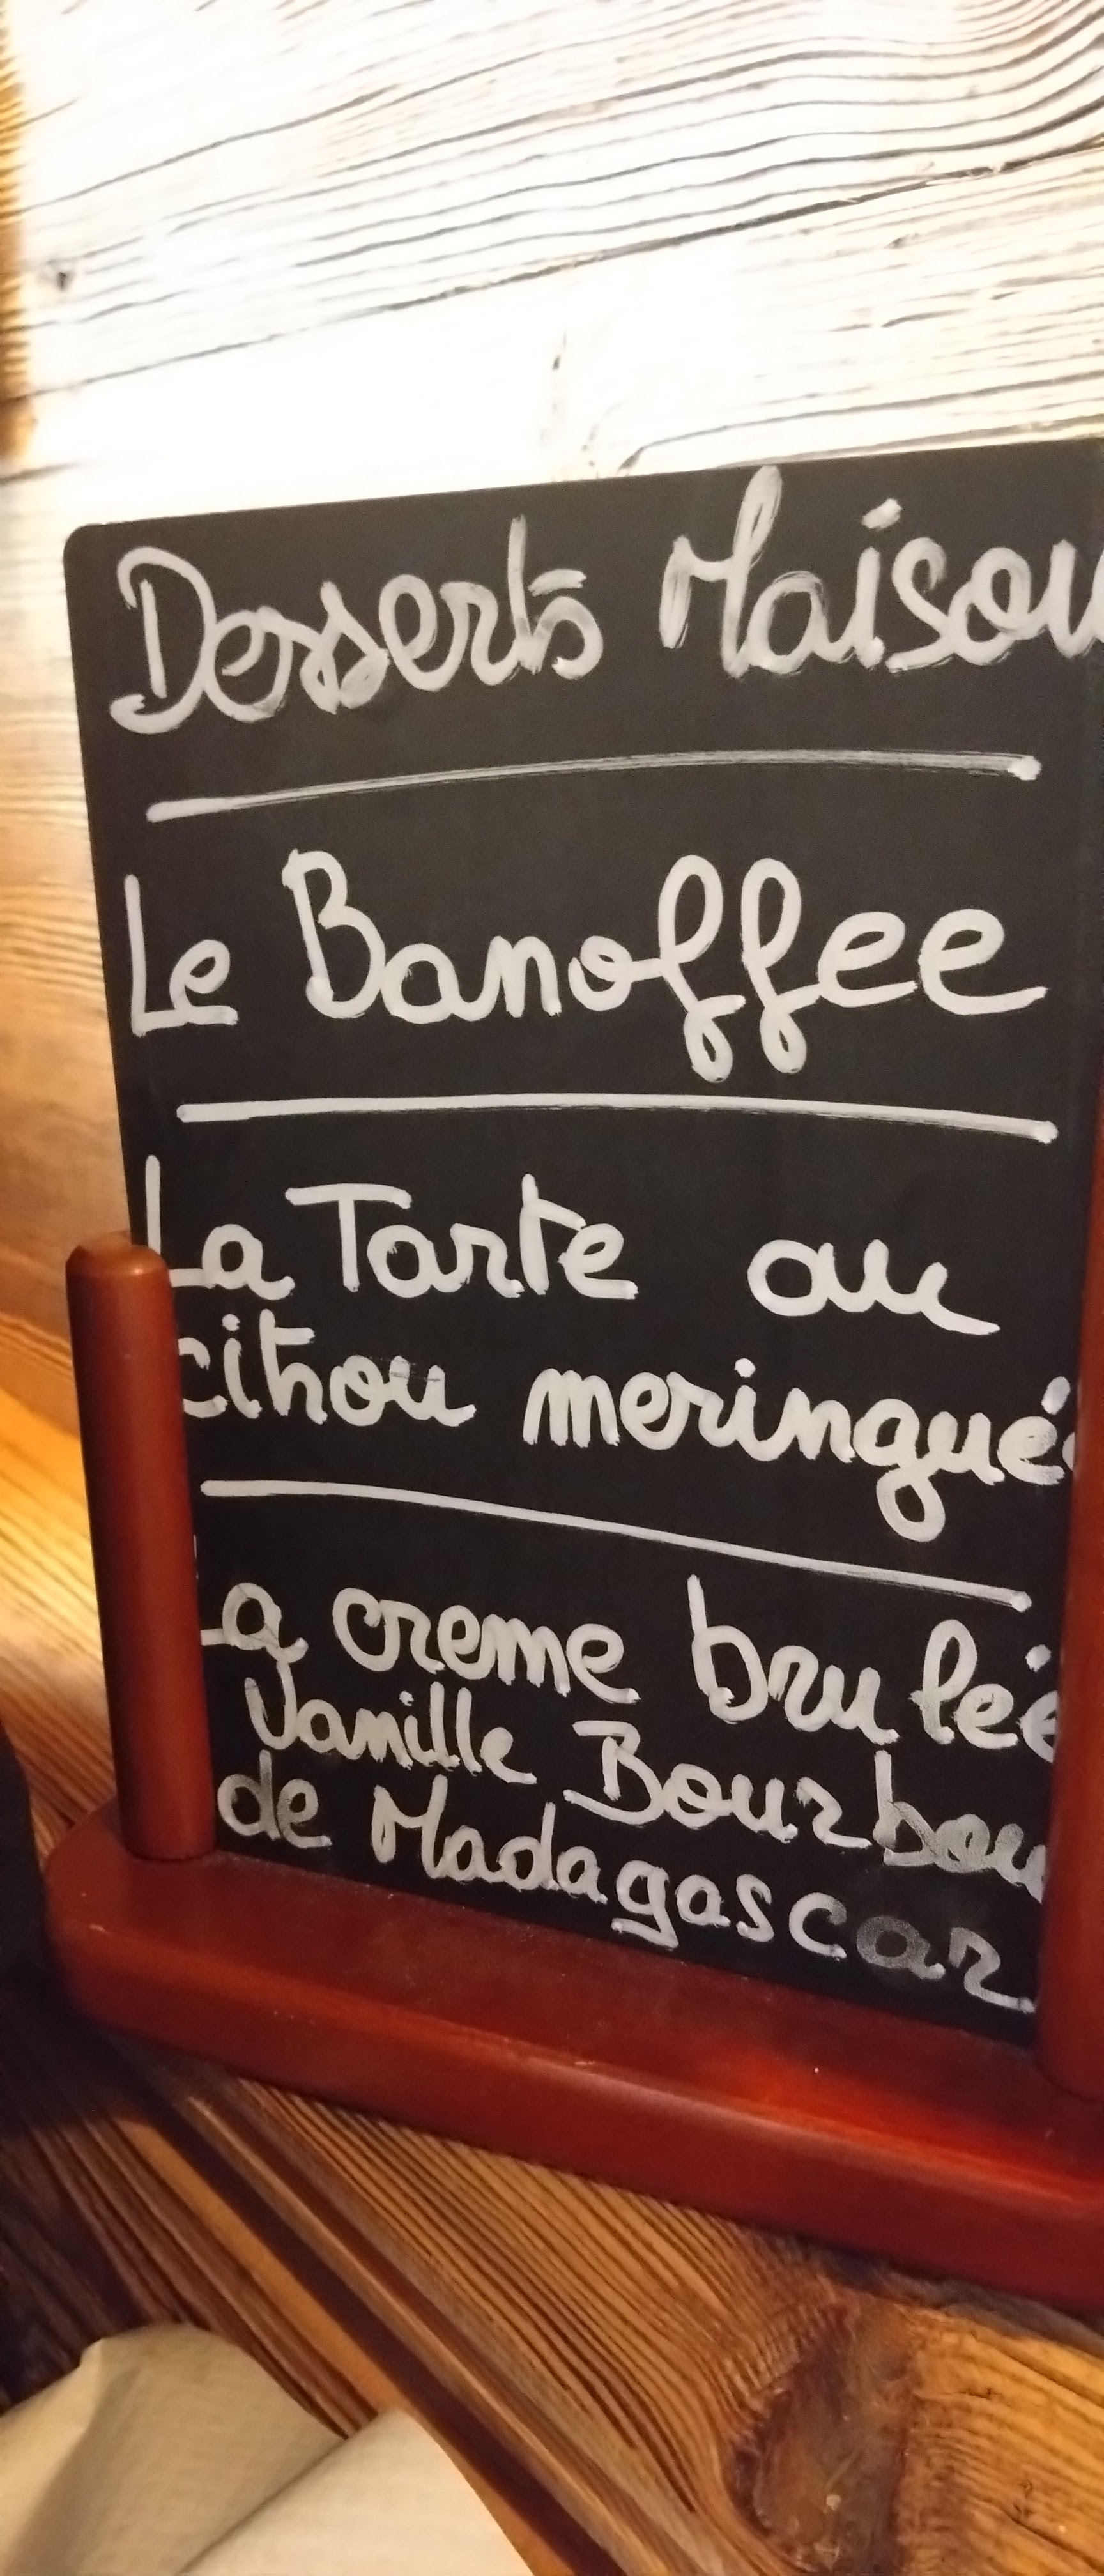 Desserts Maison
Le Banoffee
La Tarte au
citron meringuée
La creme brulée
Vanille Bourbon
de Madagascar